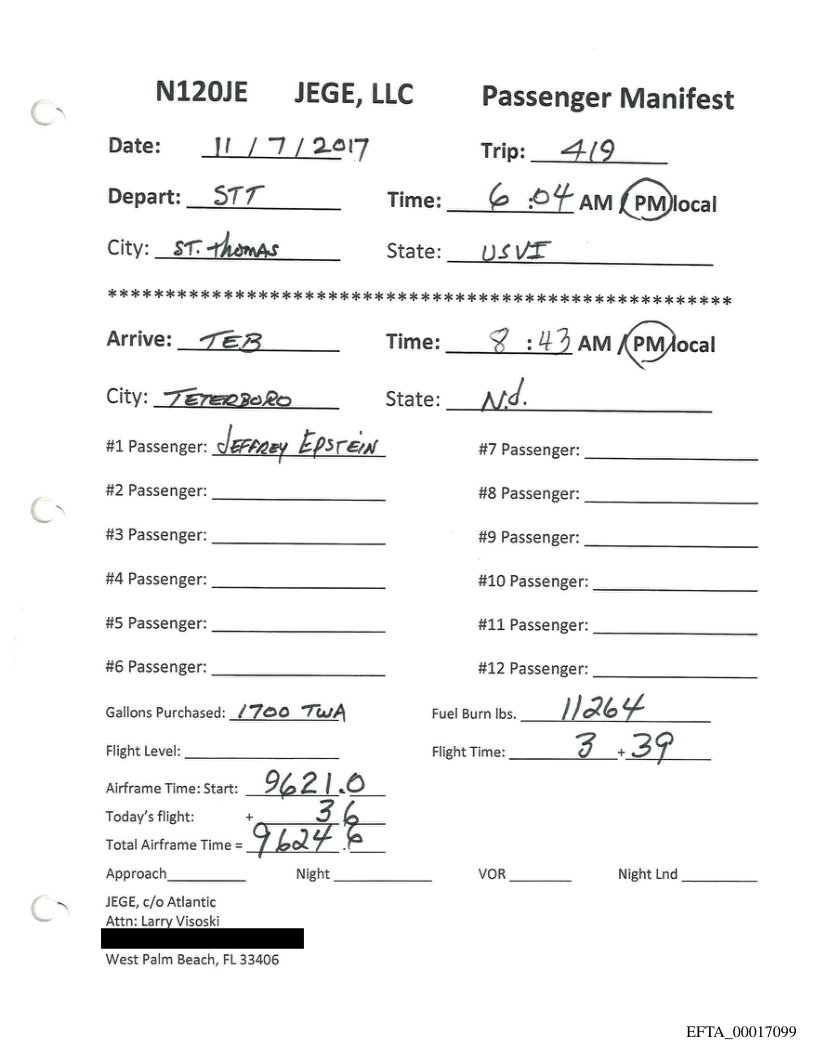 N120JE JEGE, LLC Passenger Manifest
Date: 11 / 7 / 2017 Trip: 419
Depart: STT Time: 6 :04 AM / PM local
City: ST. Thomas State: USVI
******************************************************
Arrive: TEB Time: 8 :43 AM / PM local
City: TETERBORO State: N.J.
#1 Passenger: JEFFREY EPSTEIN #7 Passenger:
#2 Passenger: #8 Passenger:
#3 Passenger: #9 Passenger:
#4 Passenger: #10 Passenger:
#5 Passenger: #11 Passenger:
#6 Passenger: #12 Passenger:
Gallons Purchased: 1700 TWA Fuel Burn lbs. 11264
Flight Level: Flight Time: 3 + 39
Airframe Time: Start: 9621.0
Today's flight: + 3 6
Total Airframe Time = 9624.6
Approach Night VOR Night Lnd
JEGE, c/o Atlantic
Attn: Larry Visoski
West Palm Beach, FL 33406
EFTA_00017099